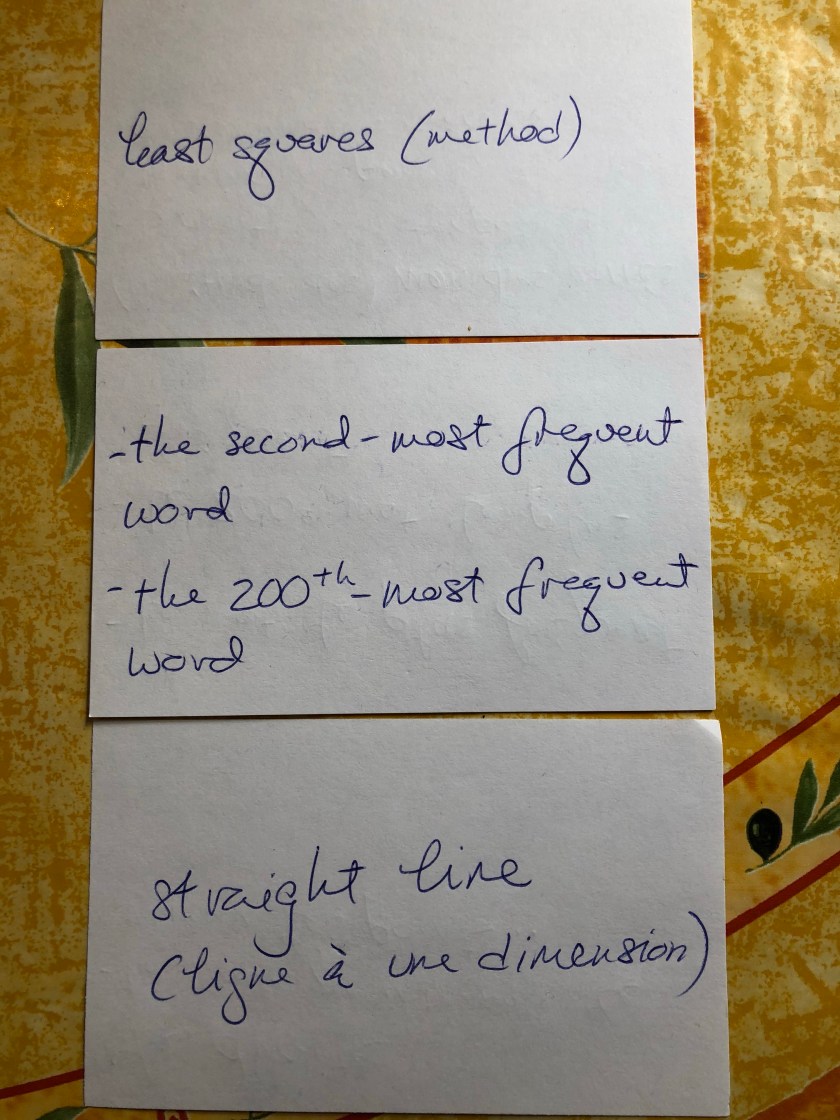 least squares (method)
- the second-most frequent
word
- the 200th-most frequent
word
straight line
(ligne à une dimension)